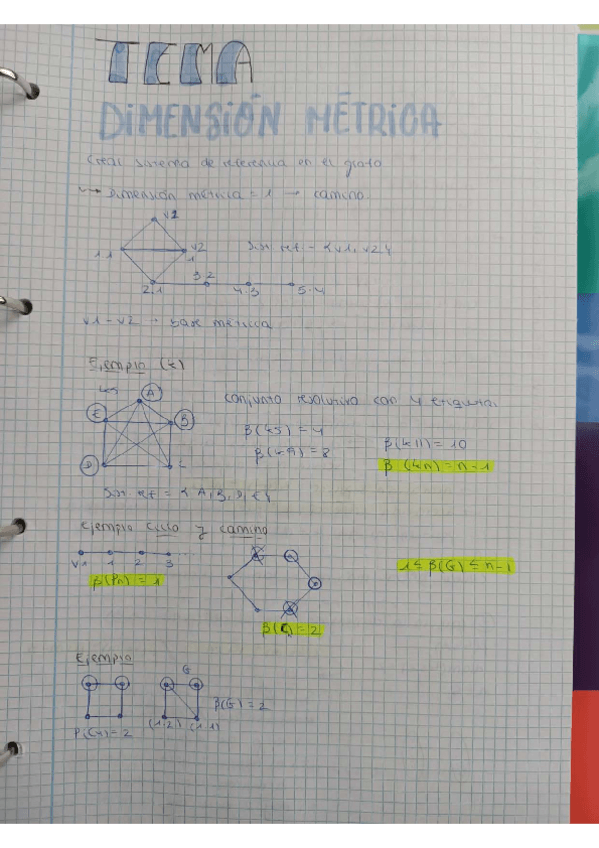 TEMA
DIMENSIÓN MÉTRICA
Crear sistema de referencia en el grafo
↳ Dimensión métrica = 1 → camino.
v2
1 1
v2
1
Sis ref = {v1, v2}
3 2
2.1
4.3
5.4
v1-v2 → base métrica
Ejemplo (k)
K5
A
E
B
D
C
conjunto resolutivo con 4
β(k5) = 4
β(k9) = 8
β(k11) = 10
β(kn) = n-1
Sis ref = {A, B, D, E}
Ejemplo ciclo y camino
v1 1 2 3
β(Pn) = 1
β(C) = 2
1 ≤ β(G) ≤ n-1
Ejemplo
G
β(G) = 2
β(C4) = 2
(1,2) (1,1)